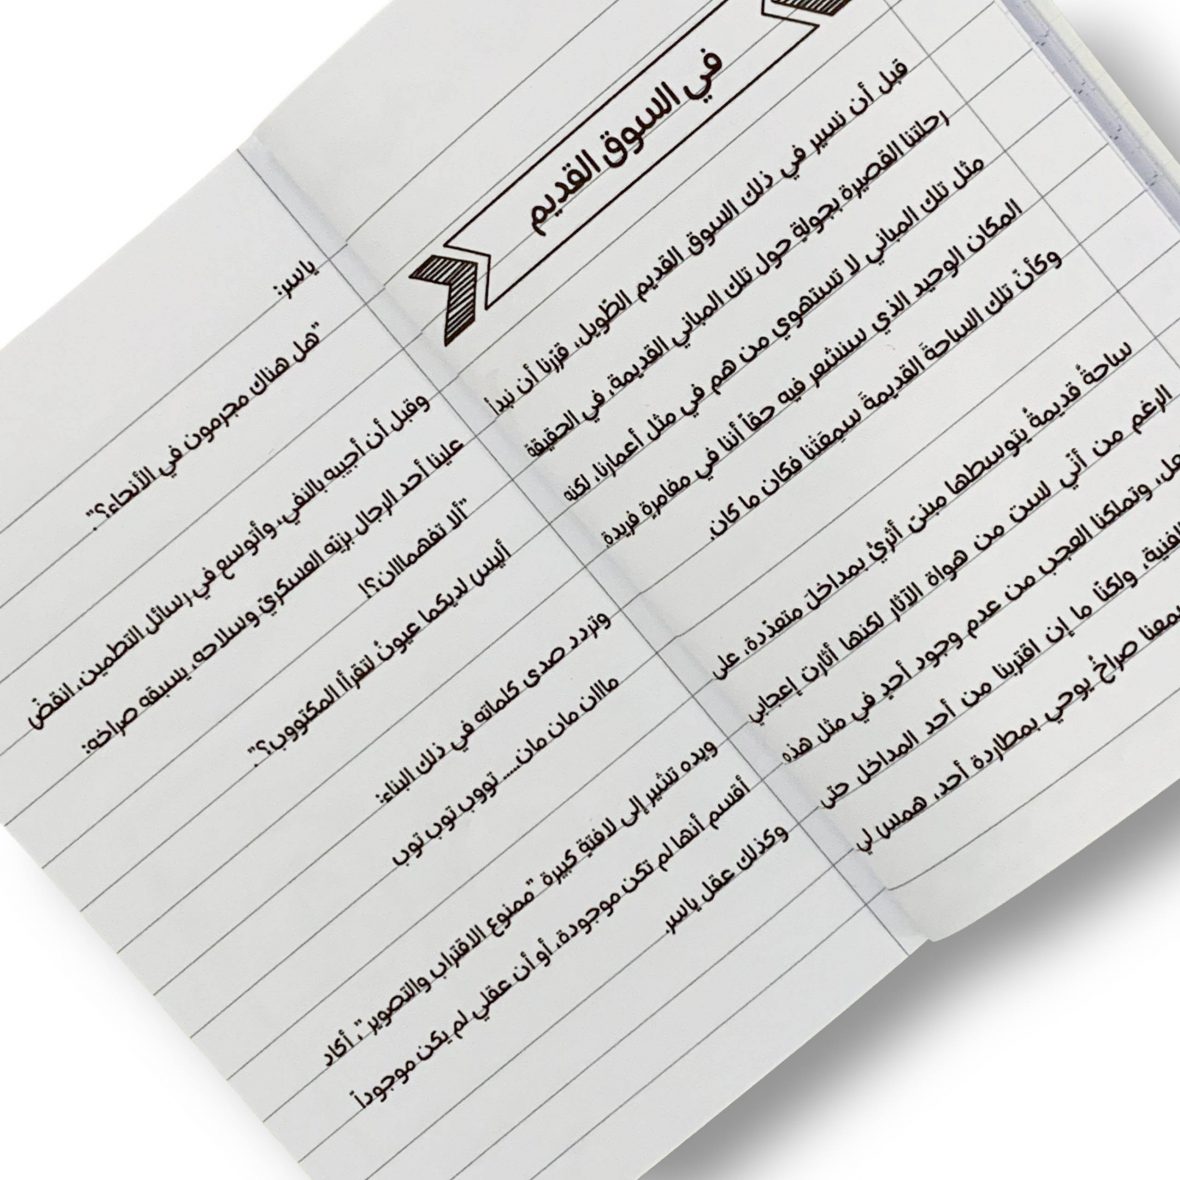 في السوق القديم
قبل أن نسير في ذلك السوق القديم الطّويل، قرّرنا أن نبدأ
رحلتنا القصيرة بجولةٍ حول تلك المباني القديمة، في الحقيقة
مثل تلك المباني لا تستهوي من هم في مثل أعمارنا، لكنّه
المكان الوحيد الذي سنشعر فيه حقاً أننا في مغامرة فريدة.
وكأنّ تلك الساحةَ القديمةَ سمعَتنا فكان ما كان.
ساحةٌ قديمةٌ يتوسطها مبنىً أثريٌ بمداخلَ متعدّدة، على
الرغم من أنّي لست من هواة الآثار لكنها أثارت إعجابي
وتملكنا العجب من عدم وجود أحدٍ في مثل هذه
الفنية، ولكنّا ما إن اقتربنا من أحد المداخل حتى
صراخٌ يوحي بمطاردة أحد، همس لي
ياسر:
"هل هناك مجرمون في الأنحاء؟".
وقبل أن أجيبه بالنفي، وأتوسع في رسائل التطمين، انقضّ
علينا أحد الرجال بزيّه العسكريّ وسلاحه، يسبقه صراخه:
"ألا تفهمااان؟!
أليس لديكما عيونٌ لتقرأا المكتووب؟".
وتردد صدى كلماته في ذلك البناء:
مااان مان مان.... تووب توب توب
ويده تشير إلى لافتةٍ كبيرة "ممنوع الاقتراب والتصوير"، أكاد
أقسم أنها لم تكن موجودة، أو أن عقلي لم يكن موجوداً
وكذلك عقل ياسر.